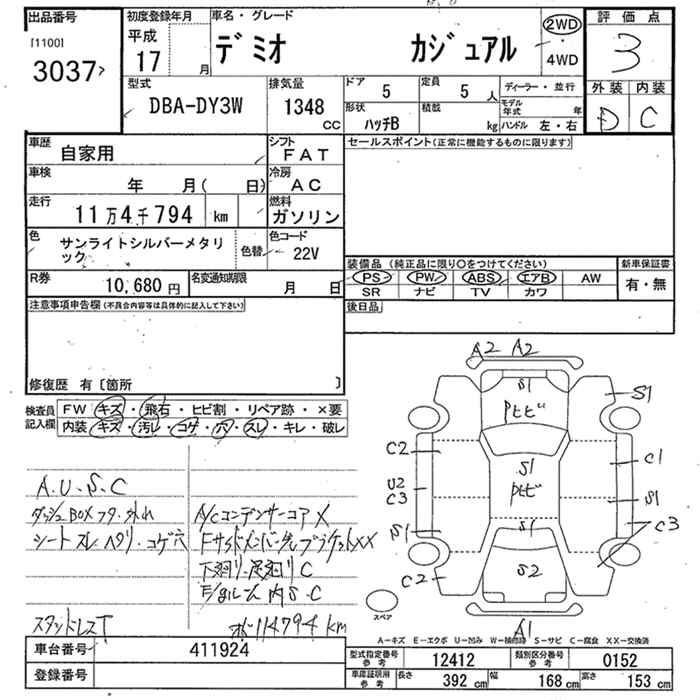 出品番号
[1100]
3037
初度登録年月
平成
17 月
車名・グレード
デミオ カジュアル
2WD
4WD
評価点
3
外装 内装
D C
型式
DBA-DY3W
排気量
1348 CC
ドア 5
定員 5 人
形状 ハッチB
積載 kg
ディーラー・並行
モデル年式 年
ハンドル 左・右
車歴 自家用
シフト FAT
車検 年 月( 日)
冷房 AC
走行 11万4千794 km
燃料 ガソリン
色 サンライトシルバーメタリック
色替
色コード 22V
R券 10,680 円
名変通知期限 月 日
セールスポイント(正常に機能するものに限ります)
装備品 (純正品に限り○をつけてください)
PS PW ABS エアB AW
SR ナビ TV カワ
新車保証書
有・無
後日品
注意事項申告欄(不具合内容等は具体的に記入して下さい)
修復歴 有〔箇所 〕
検査員記入欄
FW キズ・飛石・ヒビ割・リペア跡・×要
内装 キズ・汚レ・コゲ・穴・スレ・キレ・破レ
A.U.S.C
ダッシュBOXフタ・外れ
シートスレ・ヘタリ・コゲ穴
スタッドレスT
A/CコンデンサーコアX
下廻り・足廻りC
E/gルーム内S.C
114794km
A2 A2
S1
Pヒビ
S1
C2
S1
Pヒビ
C1
U2
C3
S1
S1
S1
C3
C2
S2
A1
スペア
A-キズ E-エクボ U-凹み W-補修跡 S-サビ C-腐食 XX-交換済
車台番号 411924
登録番号
型式指定番号 参考 12412
類別区分番号 参考 0152
車庫証明用 参考
長さ 392 cm
幅 168 cm
高さ 153 cm